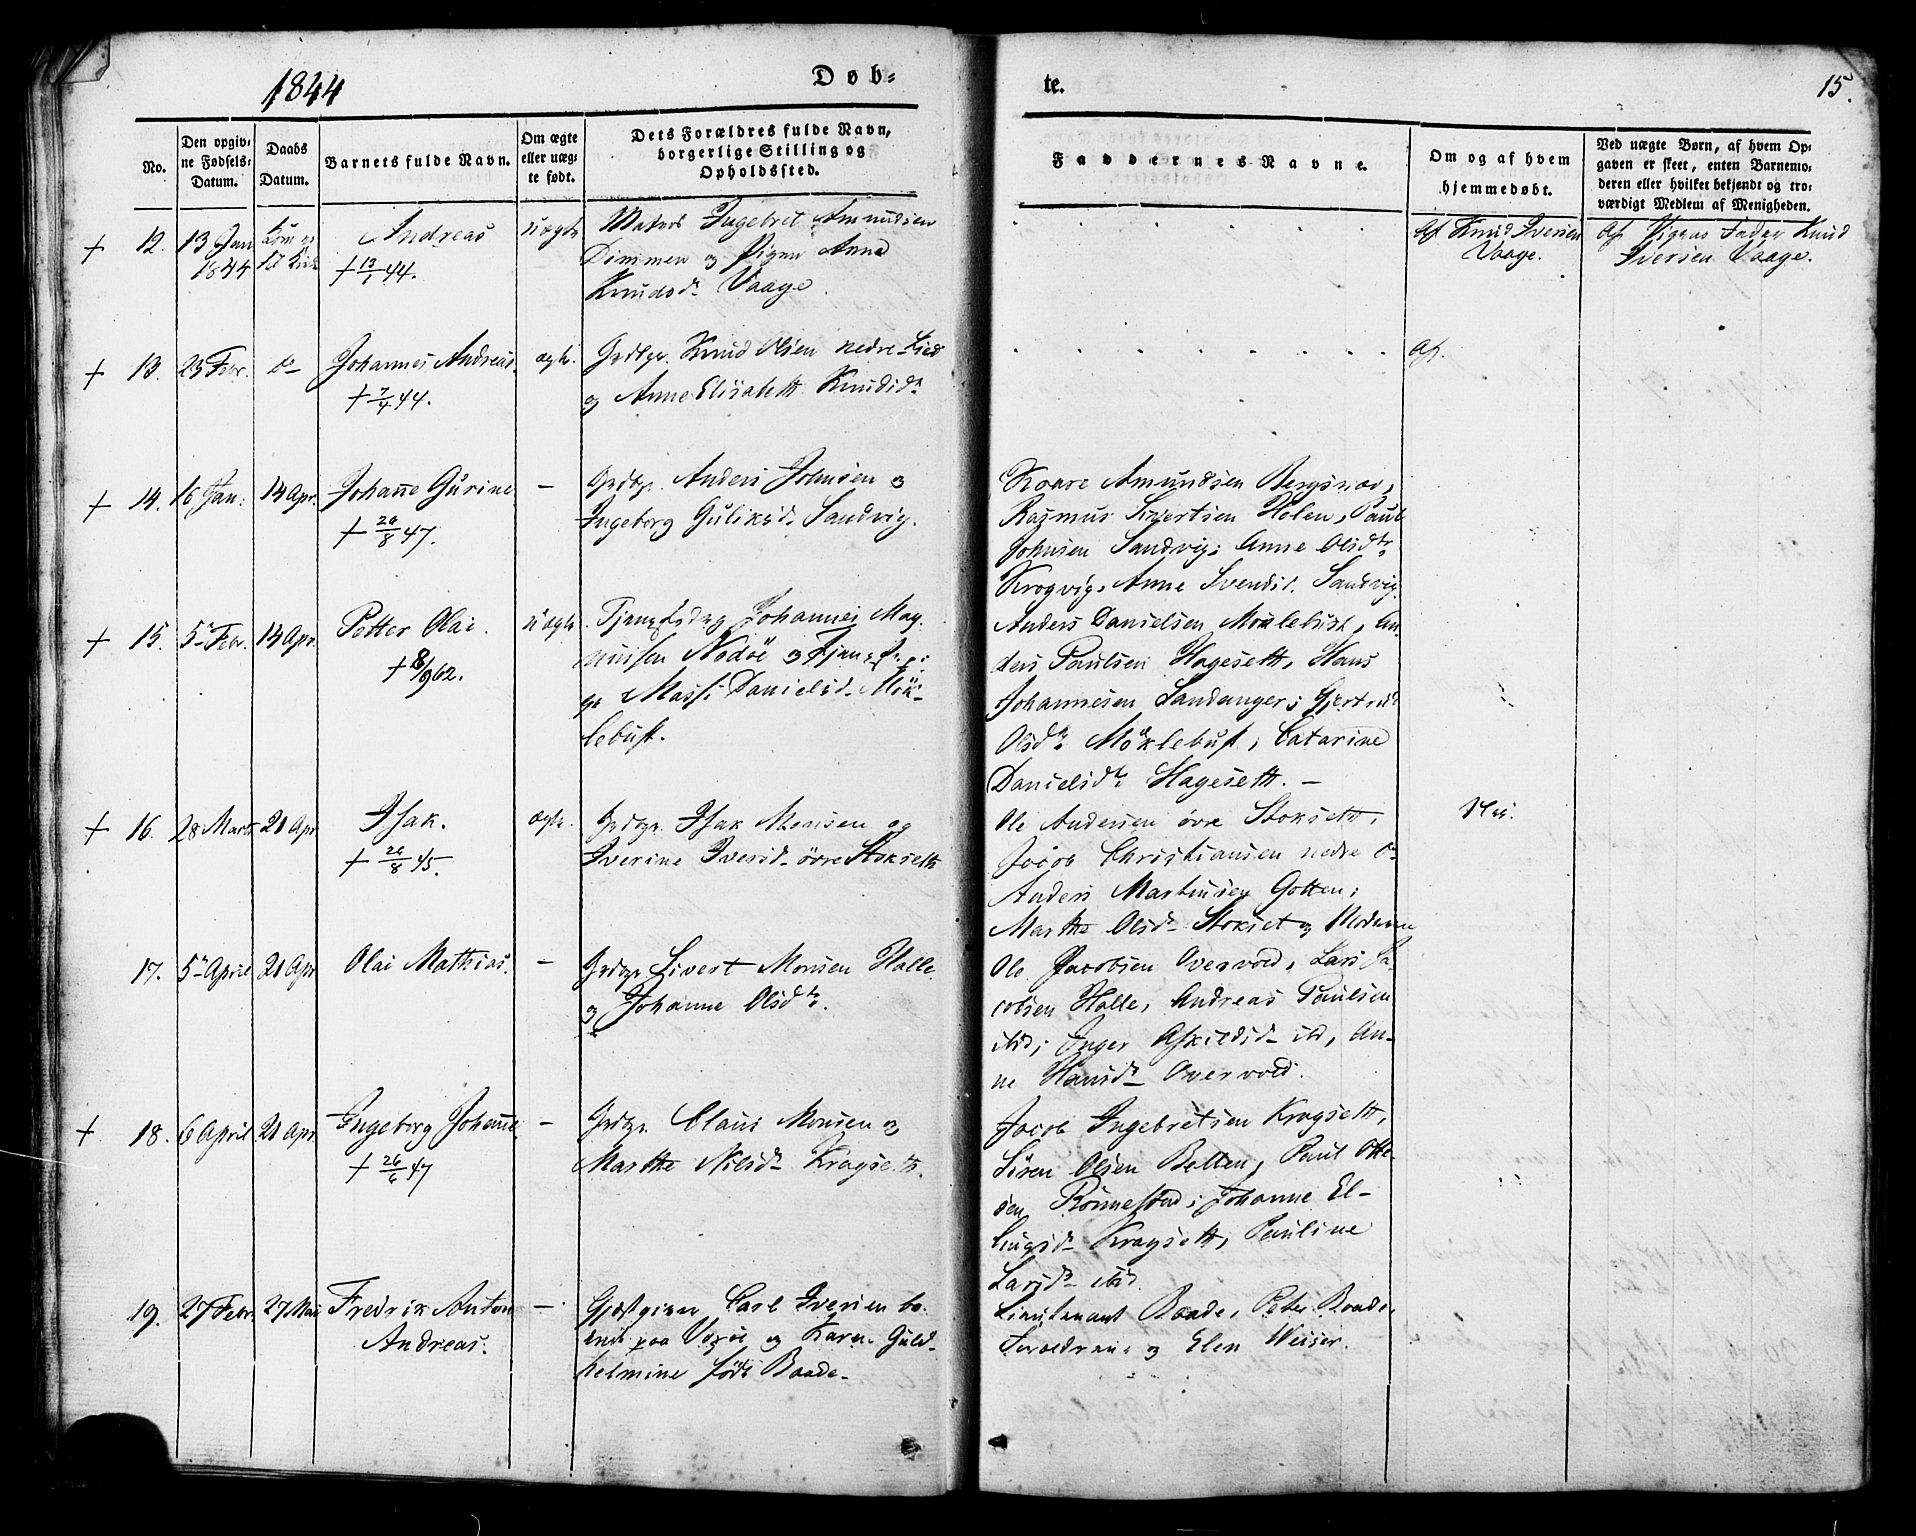 1844
Døb-
te.
15.
No.
Den opgivne Fødsels-Datum.
Daabs Datum.
Barnets fulde Navn.
Om ægte eller uægte født.
Dets Forældres fulde Navn, borgerlige Stilling og Opholdssted.
Faddernes Navne.
Om og af hvem hjemmedøbt.
Ved uægte Børn, af hvem Opgaven er skeet, enten Barnemoderen eller hvilket bekjendt og troværdigt Medlem af Menigheden.
+ 12. 13 Jan 1844
Andreas
+ 13/1 44.
uægte
Ingebret Amundsen
Dimmen og Pigen Anne
Knudsd. Vaage.
Af Knud Iversen
Vaage.
Af Pigens Fader Knud
Iversen Vaage.
+ 13. 23 Febr. do
Johannes Andreas.
+ 7/4 44.
ægte.
Grdbgr. Knud Olsen nedre Lied
og Anne Elisabeth Knudsdr
Af.
+ 14. 16 Jan: 14 Apr.
Johanne Gurine
+ 26/8 47.
–
Grdbgr. Anders Johnsen og
Ingeborg Guliksd. Sandvig.
Kaare Amundsen Bergsnæv,
Rasmus Sivertsen Holen, Paul
Johnsen Sandvig; Anne Olsdtr
Krogvig, Anne Svendsd. Sandvig
+ 15. 5 Febr. 14 Apr.
Petter Olai.
+ 8/9 62.
uægte
Tjenestedrg Johannes Mag-
nussen Nodöe og Tjenestepi-
ge Massi Danielsd. Mök-
lebust.
Anders Danielsen Möklebust, An-
ders Paulsen Hagesett, Hans
Johannesen Sandanger; Gjertrud
Olsdtr Möklebust, Catarine
Danielsdtr Hagesett. –
+ 16. 28 Marts 21 Apr
Isak.
+ 26/8 45.
ægte.
Grdbgr. Isak Monsen og
Iverine Iversd. övre Stoksett
Ole Andersen övre Stoksett,
Jacob Christiansen nedre do
Anders Martinusen Gotten;
Marthe Olsd. Stokset og Moderen
Nei.
17. 5 April 21 Apr
Olai Mathias.
–
Grdbgr Sivert Monsen Halle
og Johanne Olsdtr.
Ole Jacobsen Overvold, Lars Ja-
cobsen Halle, Andreas Paulsen
ibid; Inger Askildsd. ibd, An-
ne Hansd. Overvold.
+ 18. 6 April 21 Apr.
Ingeborg Johanne
+ 26/6 47
–
Grdbgr. Claus Monsen og
Marthe Nilsd. Kragsett.
Jacob Ingebretsen Kragsett,
Sören Olsen Belten, Paul Otte-
sen Rönnestad; Johanne El-
lingsd. Kragsett, Pauline
Larsd. ibid
19. 27 Febr. 27 Mai
Fredrik Anton
Andreas.
–
Gjæstgiver Carl Iversen bo-
ende paa og Karen Guld-
helmine födt Baade.
Lieutenant Baade, Peter Baade,
Forældrene og Elen Weiser.